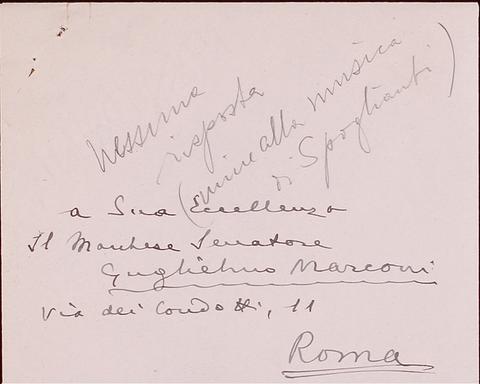 nessuna
risposta
(unire alla musica
di Spoglianti)
a Sua Eccellenza
Il Marchese Senatore
Guglielmo Marconi
Via dei Condotti, 11
Roma